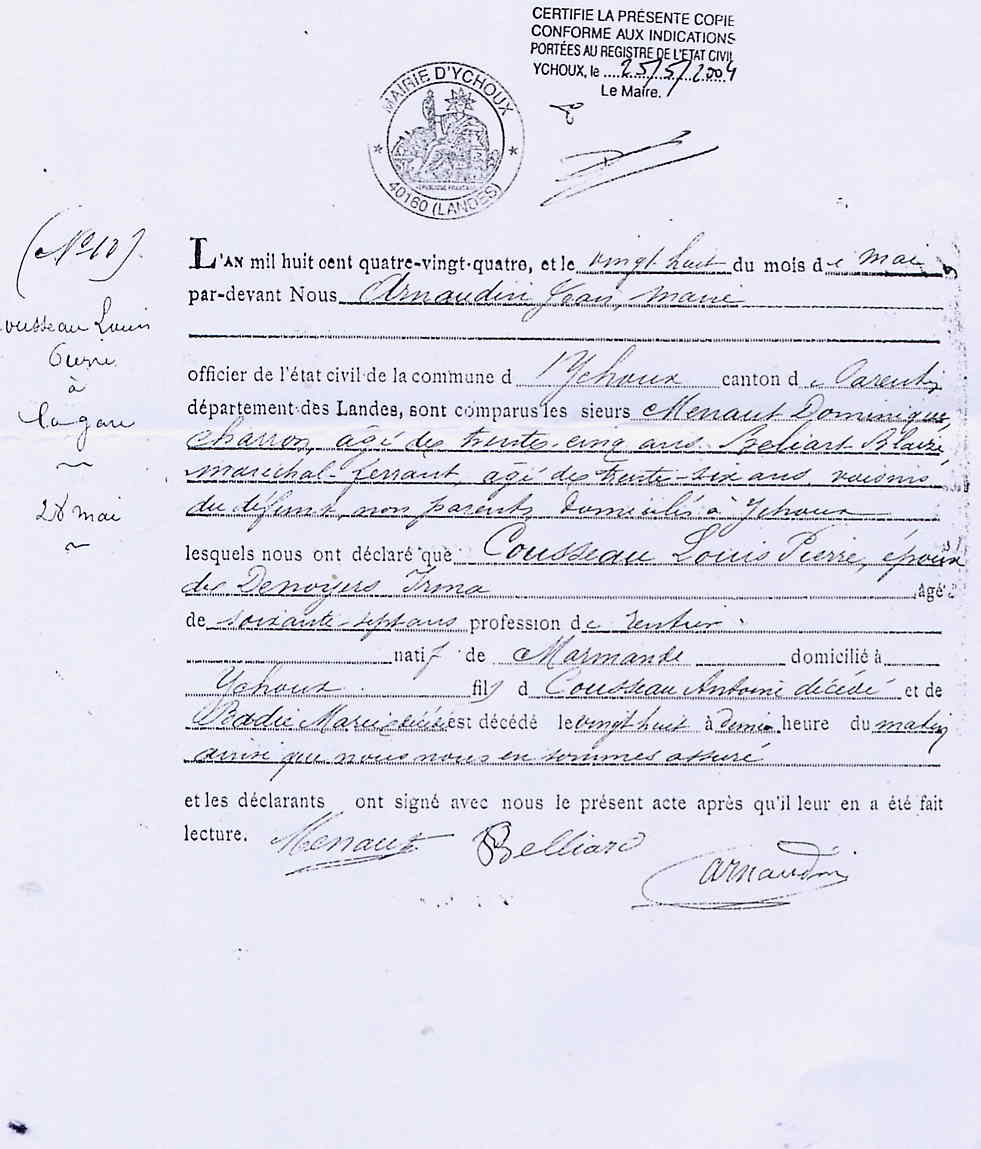 CERTIFIE LA PRÉSENTE COPIE
CONFORME AUX INDICATIONS
PORTÉES AU REGISTRE DE L'ETAT CIVIL
YCHOUX, le 25/5/2004
Le Maire.
MAIRIE D'YCHOUX
RÉPUBLIQUE FRANÇAISE
* 40160 (LANDES) *
(N° 10).
Cousseau Louis
Pierre
à
la gare
28 mai
L'AN mil huit cent quatre-vingt-quatre, et le vingt huit du mois de mai
par-devant Nous Arnaudin Jean, Marie
officier de l'état civil de la commune d'Ychoux canton de Parentis
département des Landes, sont comparus les sieurs Menaut Dominique,
charron, âgé de trente-cinq ans, Beliart Blaize,
maréchal-ferrant, âgé de trente-six ans, voisins
du défunt, non parents, domiciliés à Ychoux
lesquels nous ont déclaré que Cousseau Louis Pierre, époux
de Denoyers Irma âgé
de soixante-sept ans profession de rentier
natif de Marmande domicilié à
Ychoux fils d Cousseau Antoine décédé et de
Marie décédée est décédé le vingt huit à demie heure du matin
ainsi que nous nous en sommes assuré
et les déclarants ont signé avec nous le présent acte après qu'il leur en a été fait
lecture. Menaut Belliard
Arnaudin